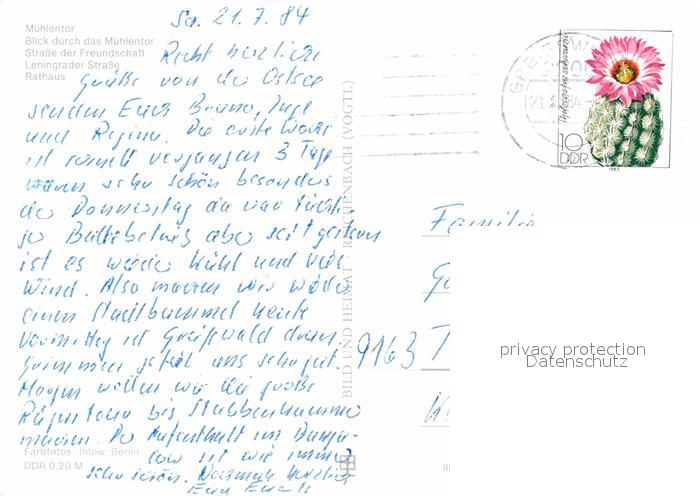 Sa. 21.7.84
Mühlentor
Blick durch das Mühlentor
Straße der Freundschaft
Leningrader Straße
Rathaus
Recht herzliche
Grüße von der Ostsee
senden Euch Bruno, Inge
und Regina. Die erste Woche
ist schnell vergangen 3 Tage
waren sehr schön besonders
der Donnerstag da war
Badebetrieb aber seit gestern
ist es wieder kühl und viel
Wind. Also machen wir wieder
einen Stadtbummel heute
Vormittag ist Greifswald dran.
Grimmen gefiel uns sehr gut.
Morgen wollen wir die große
Rügentour bis Stubbenkammer
machen. Der Aufenthalt im Bunga-
low ist wie immer
sehr schön. Nochmals herzlich
Farbfotos: Ihlow, Berlin
DDR 0,20 M
BILD UND HEIMAT REICHENBACH (VOGTL)
10
DDR
1983
Familie
G
9163 T
privacy protection
Datenschutz